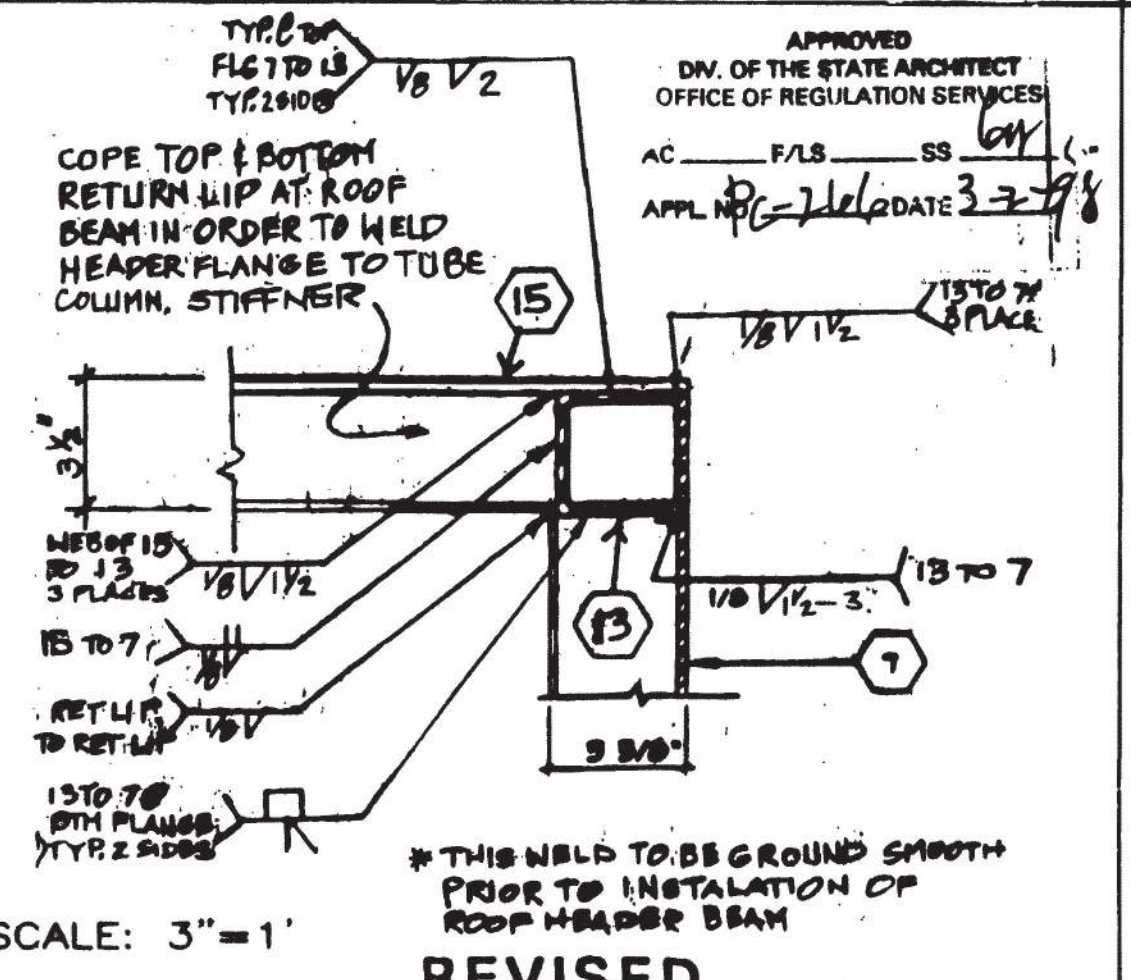 TYP. @ TOP
FLG 7 TO 13
TYP. 2 SIDES
1/8 2
APPROVED
DIV. OF THE STATE ARCHITECT
OFFICE OF REGULATION SERVICES
AC F/LS SS
APPL. NO PC-266 DATE
COPE TOP & BOTTOM
RETURN LIP AT ROOF
BEAM IN ORDER TO WELD
HEADER FLANGE TO TUBE
COLUMN. STIFFNER
15
13 TO 7
3 PLACE
1/8 1 1/2
3 1/2"
WEB OF 15
TO 13
3 PLACES
1/8 1 1/2
15 TO 7
1/8
RET LIP
TO RET LIP
1/8
13 TO 7
1/8 1 1/2-3"
13
7
13 TO 7 @
BTM FLANGE
TYP. 2 SIDES
* THIS WELD TO BE GROUND SMOOTH
PRIOR TO INSTALATION OF
ROOF HEADER BEAM
SCALE: 3"=1'
REVISED